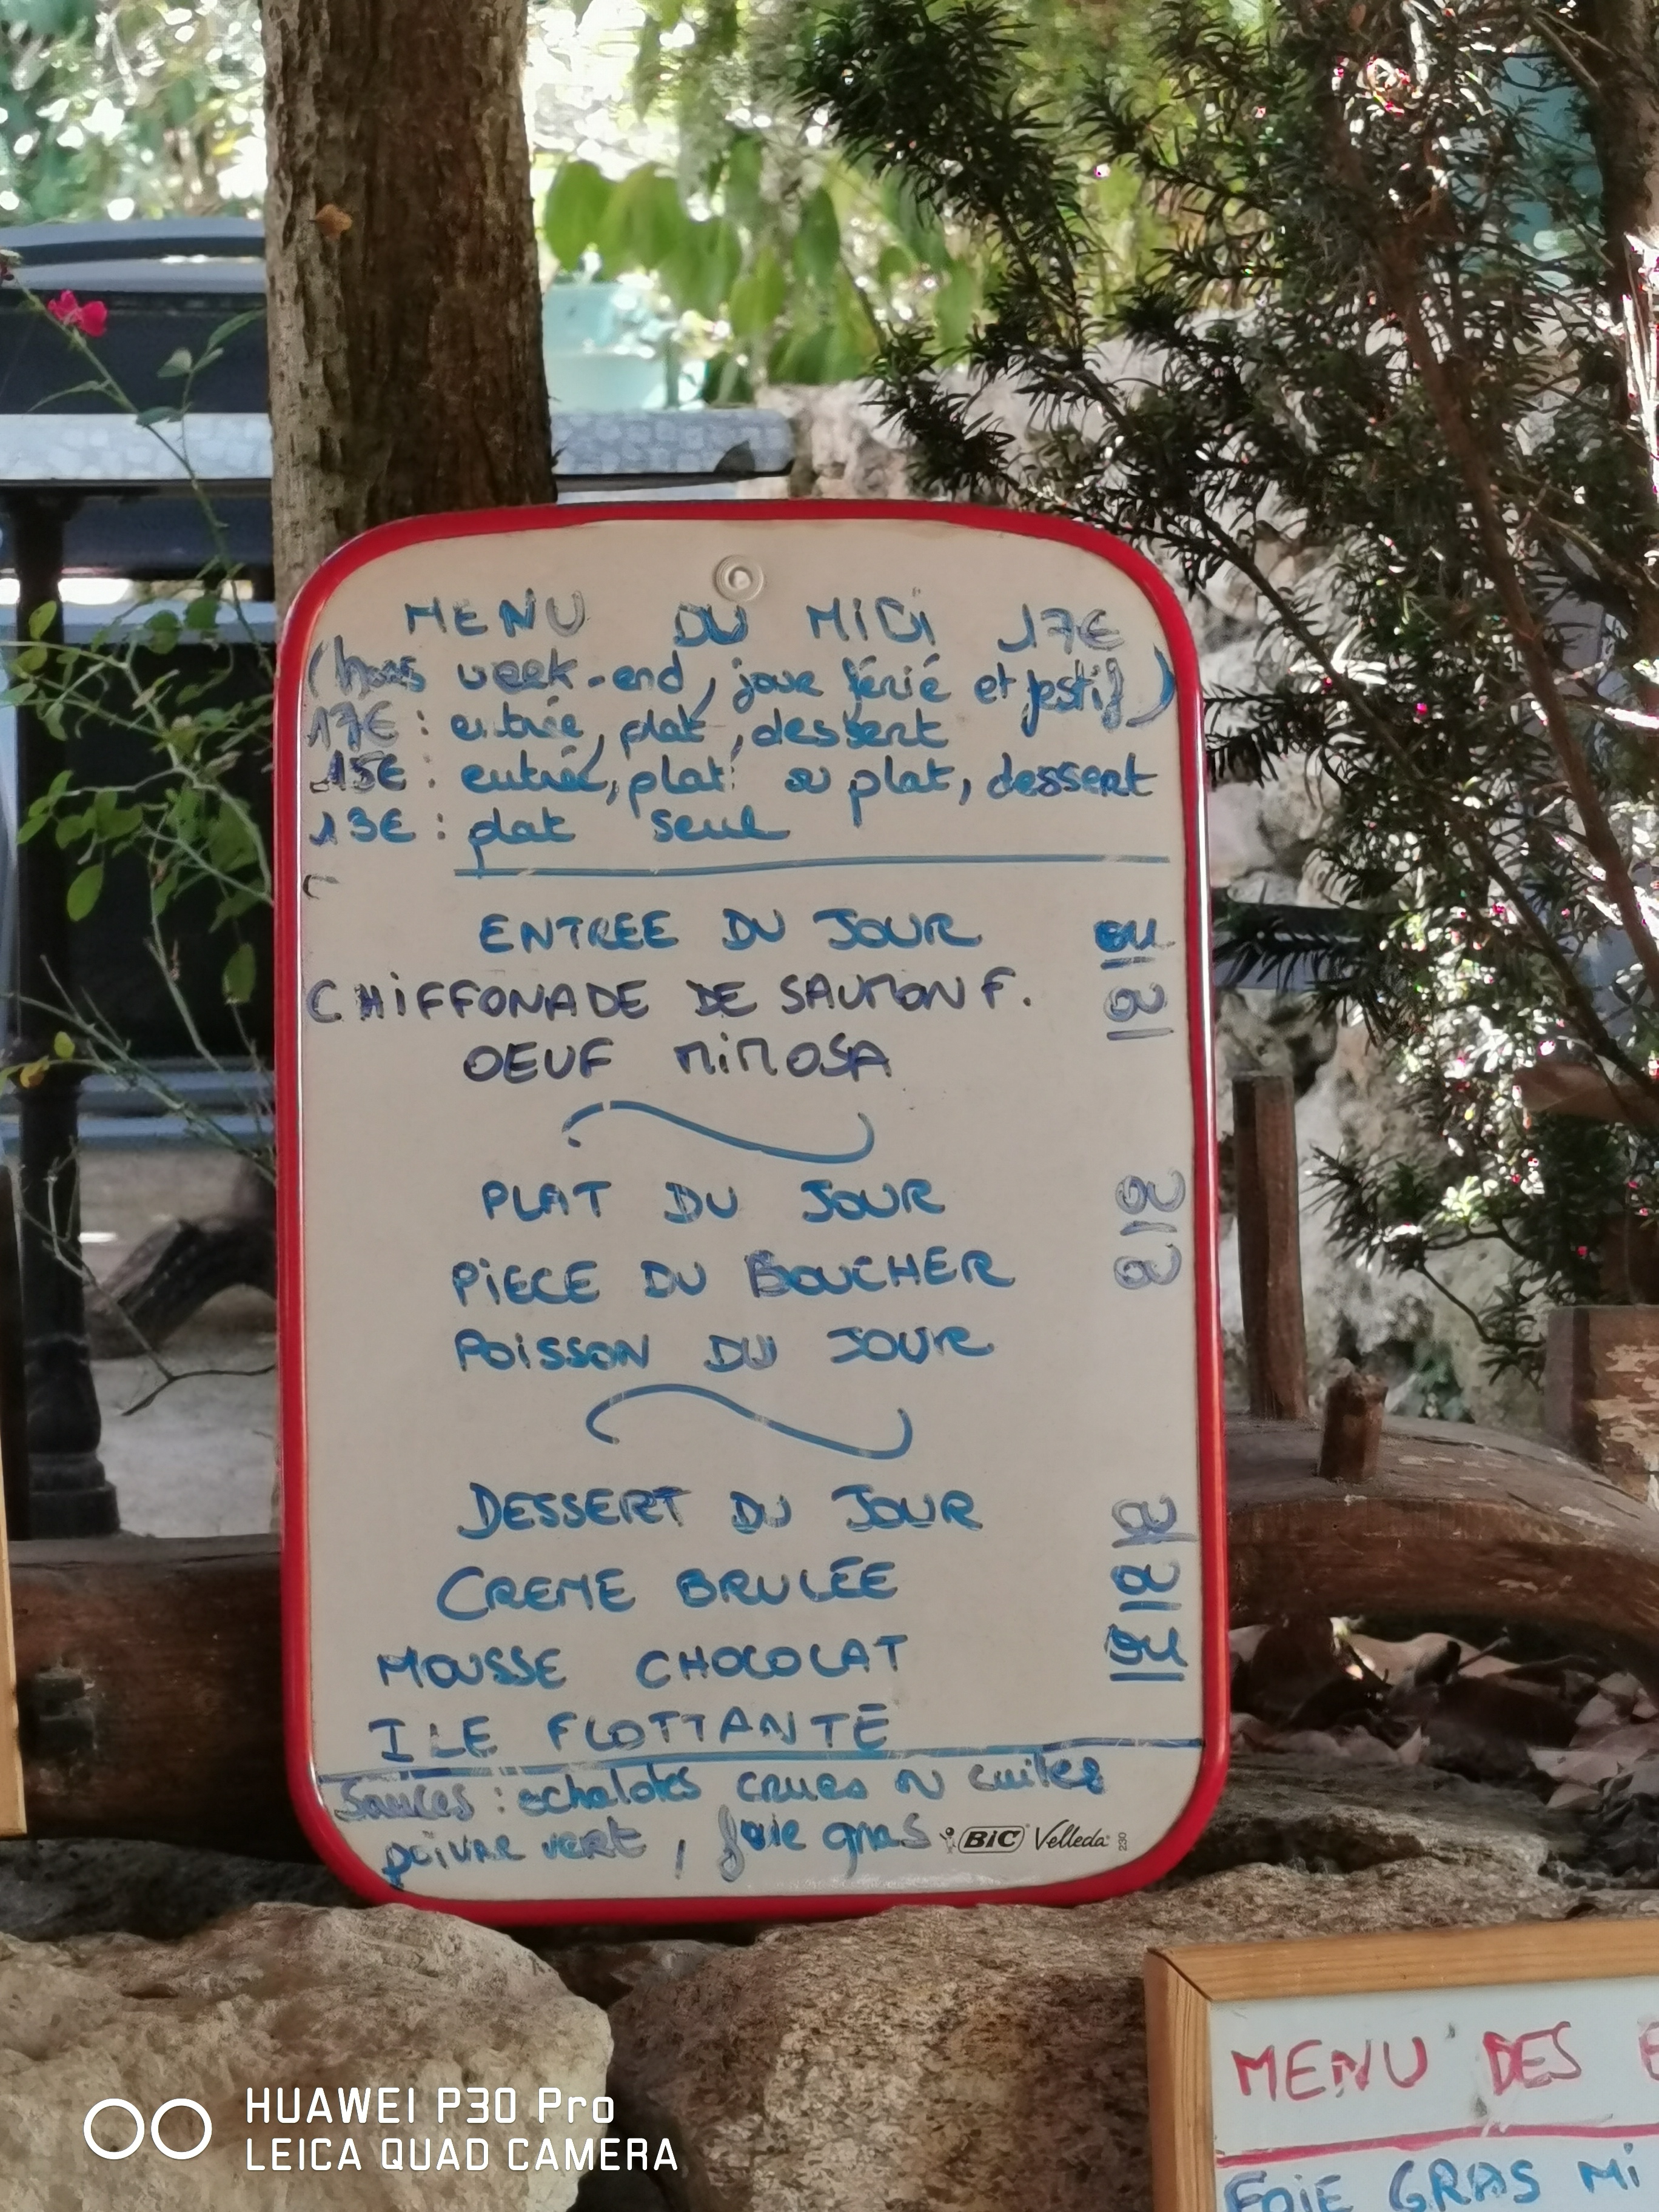 MENU DU MIDI 17€
(hors week-end, jour férié et festif)
17€ : entrée, plat, dessert
15€ : entrée, plat ou plat, dessert
13€ : plat seul
ENTREE DU JOUR
ou
CHIFFONADE DE SAUMON F.
ou
OEUF MIMOSA
PLAT DU JOUR
ou
PIECE DU BOUCHER
ou
POISSON DU JOUR
DESSERT DU JOUR
ou
CREME BRULÉE
ou
MOUSSE CHOCOLAT
ou
ILE FLOTTANTE
Sauces : echalotes crues ou cuites
poivre vert, foie gras
BIC Velleda 230
MENU DES
FOIE GRAS MI
HUAWEI P30 Pro
LEICA QUAD CAMERA